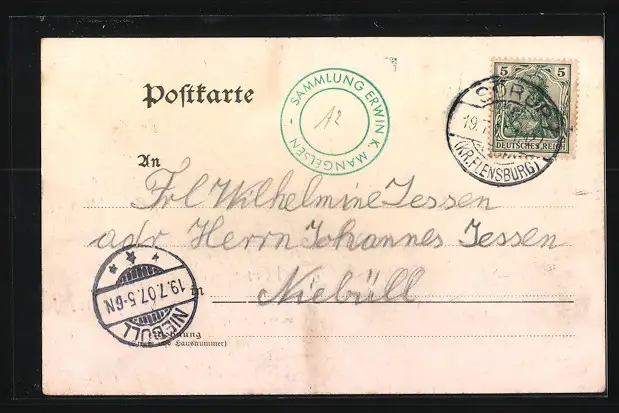 Postkarte
SAMMLUNG ERWIN K. MANGELSEN -
A2
5 5
DEUTSCHES REICH
SÖRUP
19.7.
(KR. FLENSBURG)
An
Frl Wilhelmine Jessen
adr Herrn Johannes Jessen
in Niebüll
19.7.07.5-6N
NIEBÜLL
Wohnung
(Straße und Hausnummer)